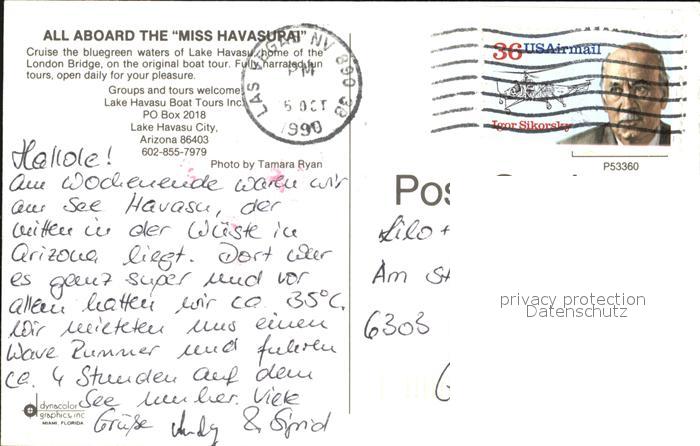 ALL ABOARD THE "MISS HAVASUPAI"
Cruise the bluegreen waters of Lake Havasu, home of the
London Bridge, on the original boat tour. Fully narrated fun
tours, open daily for your pleasure.
Groups and tours welcome
Lake Havasu Boat Tours Inc.
PO Box 2018
Lake Havasu City,
Arizona 86403
602-855-7979
Photo by Tamara Ryan
LAS VEGAS NV 890
PM
5 OCT
1990
36 USAirmail
Igor Sikorsky
P53360
Hallole!
Am Wochenende waren wir
am See Havasu, der
mitten in der Wüste in
Arizona liegt. Dort war
es ganz super und vor
allem hatten wir ca. 35°C.
Wir mieteten uns einen
Wave Runner und fuhren
ca. 4 Stunden auf dem
See umher. Viele
Grüße Andy & Sigrid
dynacolor
graphics, inc
MIAMI, FLORIDA
Pos
Lilo +
Am St
6303
privacy protection
Datenschutz